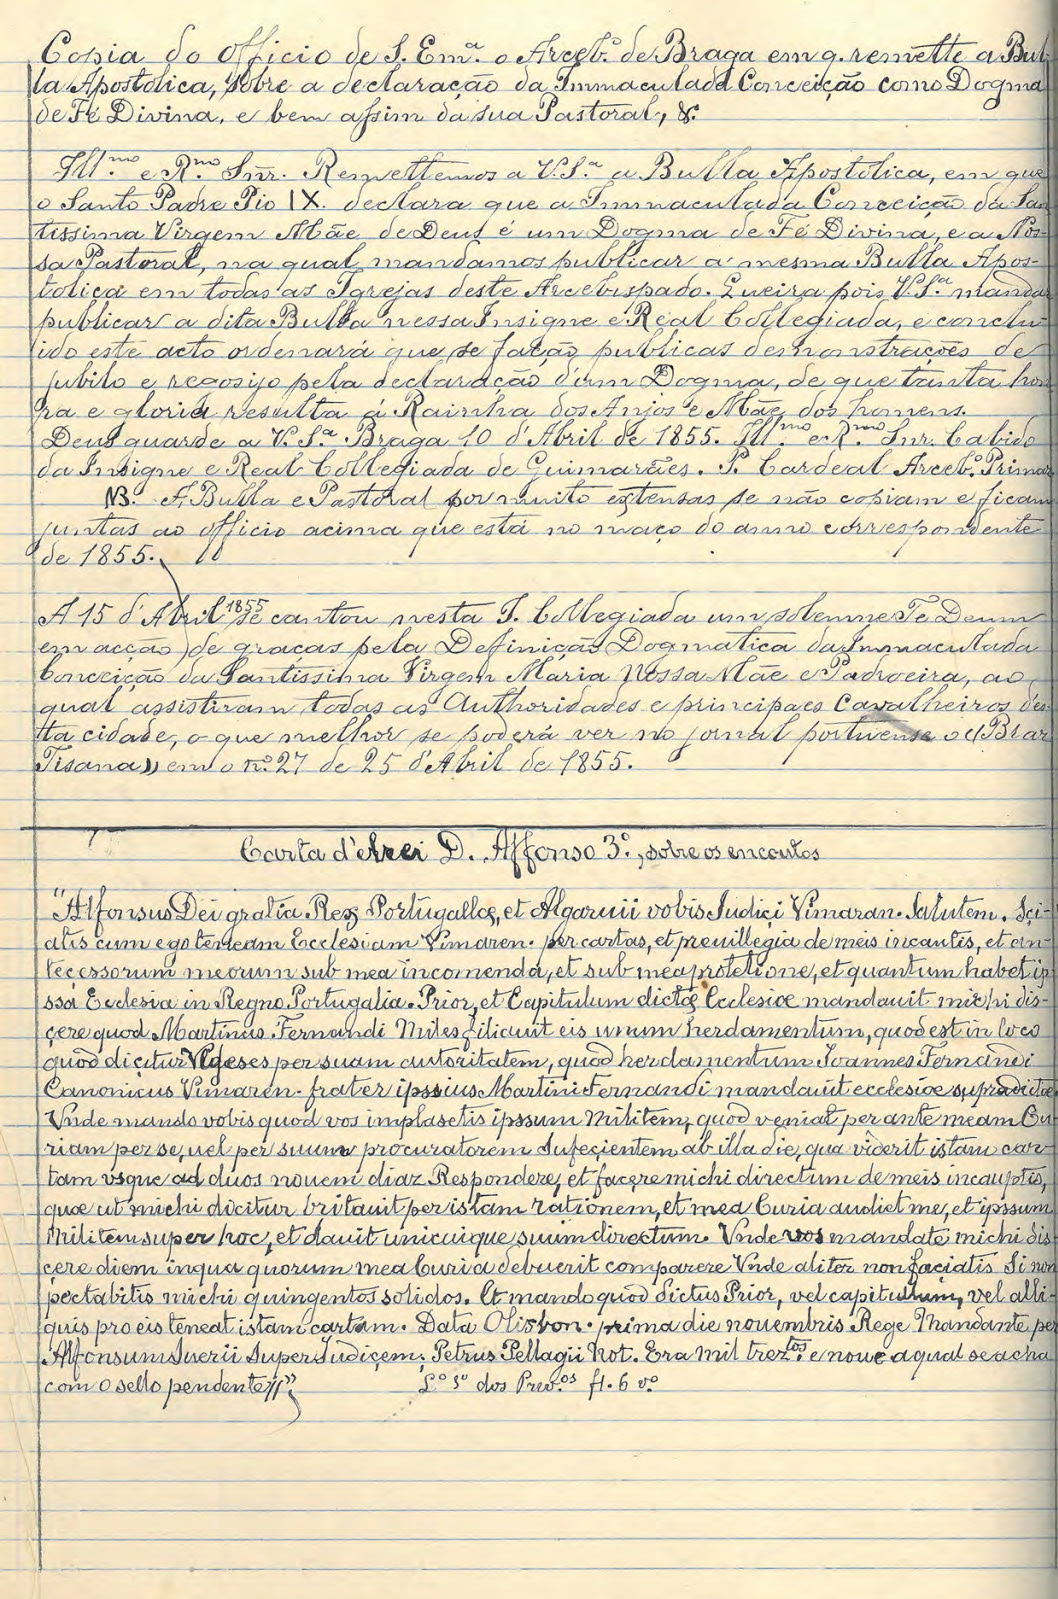 Copia do Officio de S. Em.ª o Arceb.º de Braga em q. remette a Bul-
la Apostolica, sobre a declaração da Immaculada Conceição como Dogma
de Fé Divina, e bem assim da sua Pastoral, &.
Ill.mo e R.mo Snr. Remettemos a V.S.ª a Bulla Apostolica, em que
o Santo Padre Pio IX. declara que a Immaculada Conceição da San-
tissima Virgem Mãe de Deus é um Dogma de Fé Divina, e a Nos-
sa Pastoral, na qual mandamos publicar a mesma Bulla Apos-
tolica em todas as Igrejas deste Arcebispado. Queira pois V.S.ª mandar
publicar a dita Bulla nessa Insigne e Real Collegiada, e conclu-
ido este acto ordenará que se fação publicas demonstrações de
jubilo e regosijo pela declaração d'um Dogma, de que tanta hon-
ra e gloria resulta á Rainha dos Anjos e Mãe dos homens.
Deus guarde a V.S.ª Braga 10 d'Abril de 1855. Ill.mo e R.mo Snr. Cabido
da Insigne e Real Collegiada de Guimarães. P. Cardeal Arceb.º Primaz
NB. A Bulla e Pastoral por muito extensas se não copiam e ficam
juntas ao officio acima que está no maço do anno correspondente
de 1855.
A 15 d'Abril 1855 se cantou nesta I. Collegiada um solemne Te Deum
em acção de graças pela Definição Dogmatica da Immaculada
Conceição da Santissima Virgem Maria Nossa Mãe e Padroeira, ao
qual assistiram todas as Authoridades e principaes Cavalheiros des-
ta cidade, o que melhor se poderá ver no jornal portuense o «Braz
Tisana» em o nº. 27 de 25 d'Abril de 1855.
Carta d'elrei D. Affonso 3.º, sobre os encoutos
"Alfonsus Dei gratia Rex Portugallę, et Algarvii vobis Judiçi Vimaran. Salutem. Sçi-
atis cum ego teneam Ecclesiam Vimaren. per cartas, et preuillegia de meis incautis, et an-
teçessorum meorum sub mea incomenda, et sub mea protetione, et quantum habet ip-
ssa Ecclesia in Regno Portugalia. Prior, et Capitulum dictę Ecclesiæ mandauit michi dis-
çere quod Martinus Fernandi Miles filiauit eis unum herdamentum, quod est in loco
quod diçitur Ulgeses per suam autoritatem, quod herdamentum Joannes Fernandi
Canonicus Vimaren. frater ipssius Martini Fernandi mandauit ecclesiæ supradictæ
Vnde mando vobis quod vos implasetis ipssum Militem, quod veniat per ante meam Cu-
riam per se, uel per suum procuratorem Sufeçientem ab illa die, qua viderit istam car-
tam vsque ad duos nouem diaz Respondere, et façere michi directum de meis incauptis,
quæ ut michi diçitur britauit per istam rationem, et mea Curia audiet me, et ipssum
Militem super hoc, et dauit unicuique suum directum. Vnde vos mandate michi dis-
çere diem inqua quorum mea Curia debuerit comparere Vnde aliter non façiatis. Si non
pectabitis michi quingentos solidos. Et mando quod dictus Prior, vel capitullum, vel alli-
quis pro eis teneat istam cartam. Data Olisbon. prima die nouembris Rege Mandante per
Alfonsum Suerii Super Judiçem; Petrus Pellagii Not. Era mil trez.tos e noue a qual se acha
com o sello pendente//"
L.º 3º dos Prev.os fl. 6 vº